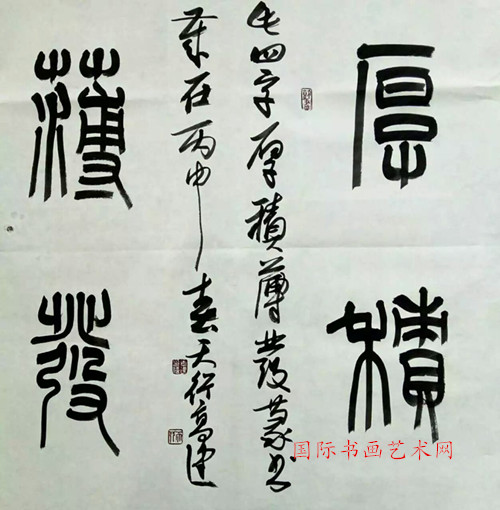 厚積
薄發
四字厚積薄發篆书
歲在丙申春天行高建
国际书画艺术网